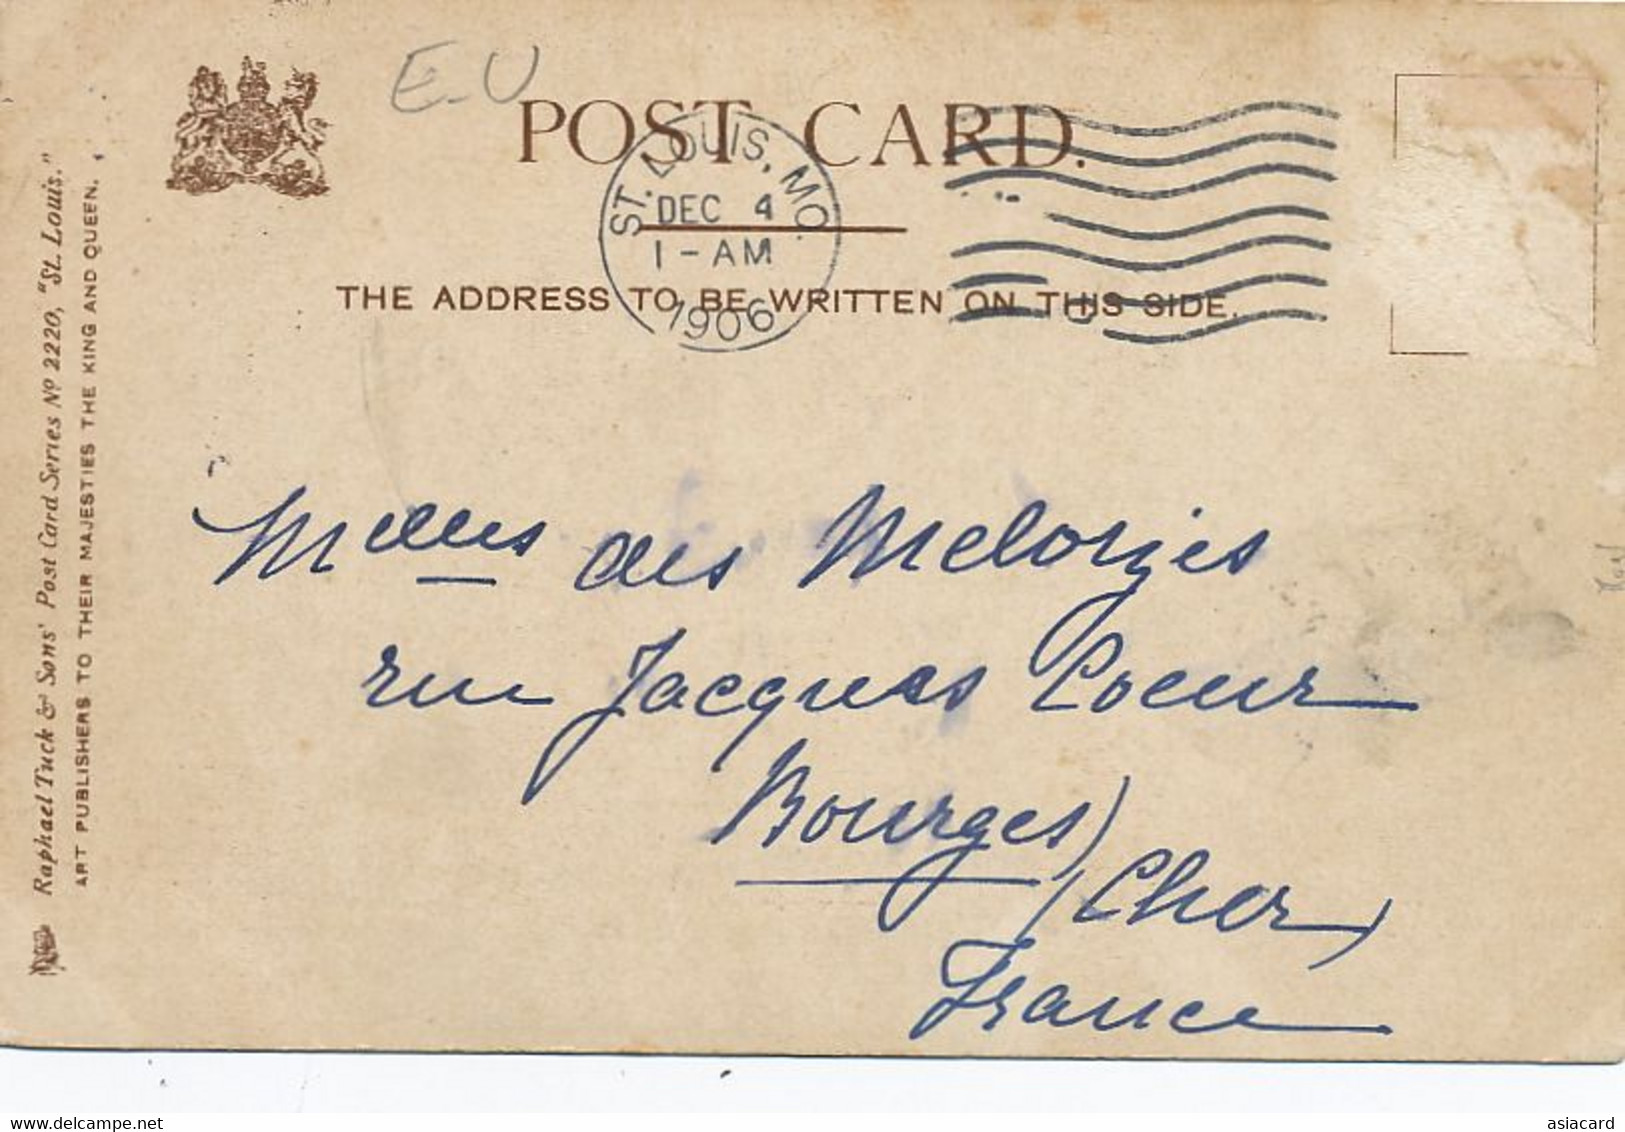 E-U
POST CARD.
ST. LOUIS, MO.
DEC 4
1-AM
1906
THE ADDRESS TO BE WRITTEN ON THIS SIDE.
Raphael Tuck & Sons' Post Card Series No 2220, "St. Louis."
ART PUBLISHERS TO THEIR MAJESTIES THE KING AND QUEEN.
Melles des Meloizes
rue Jacques Coeur
Bourges
(Cher)
France
delcampe.net
asiacard